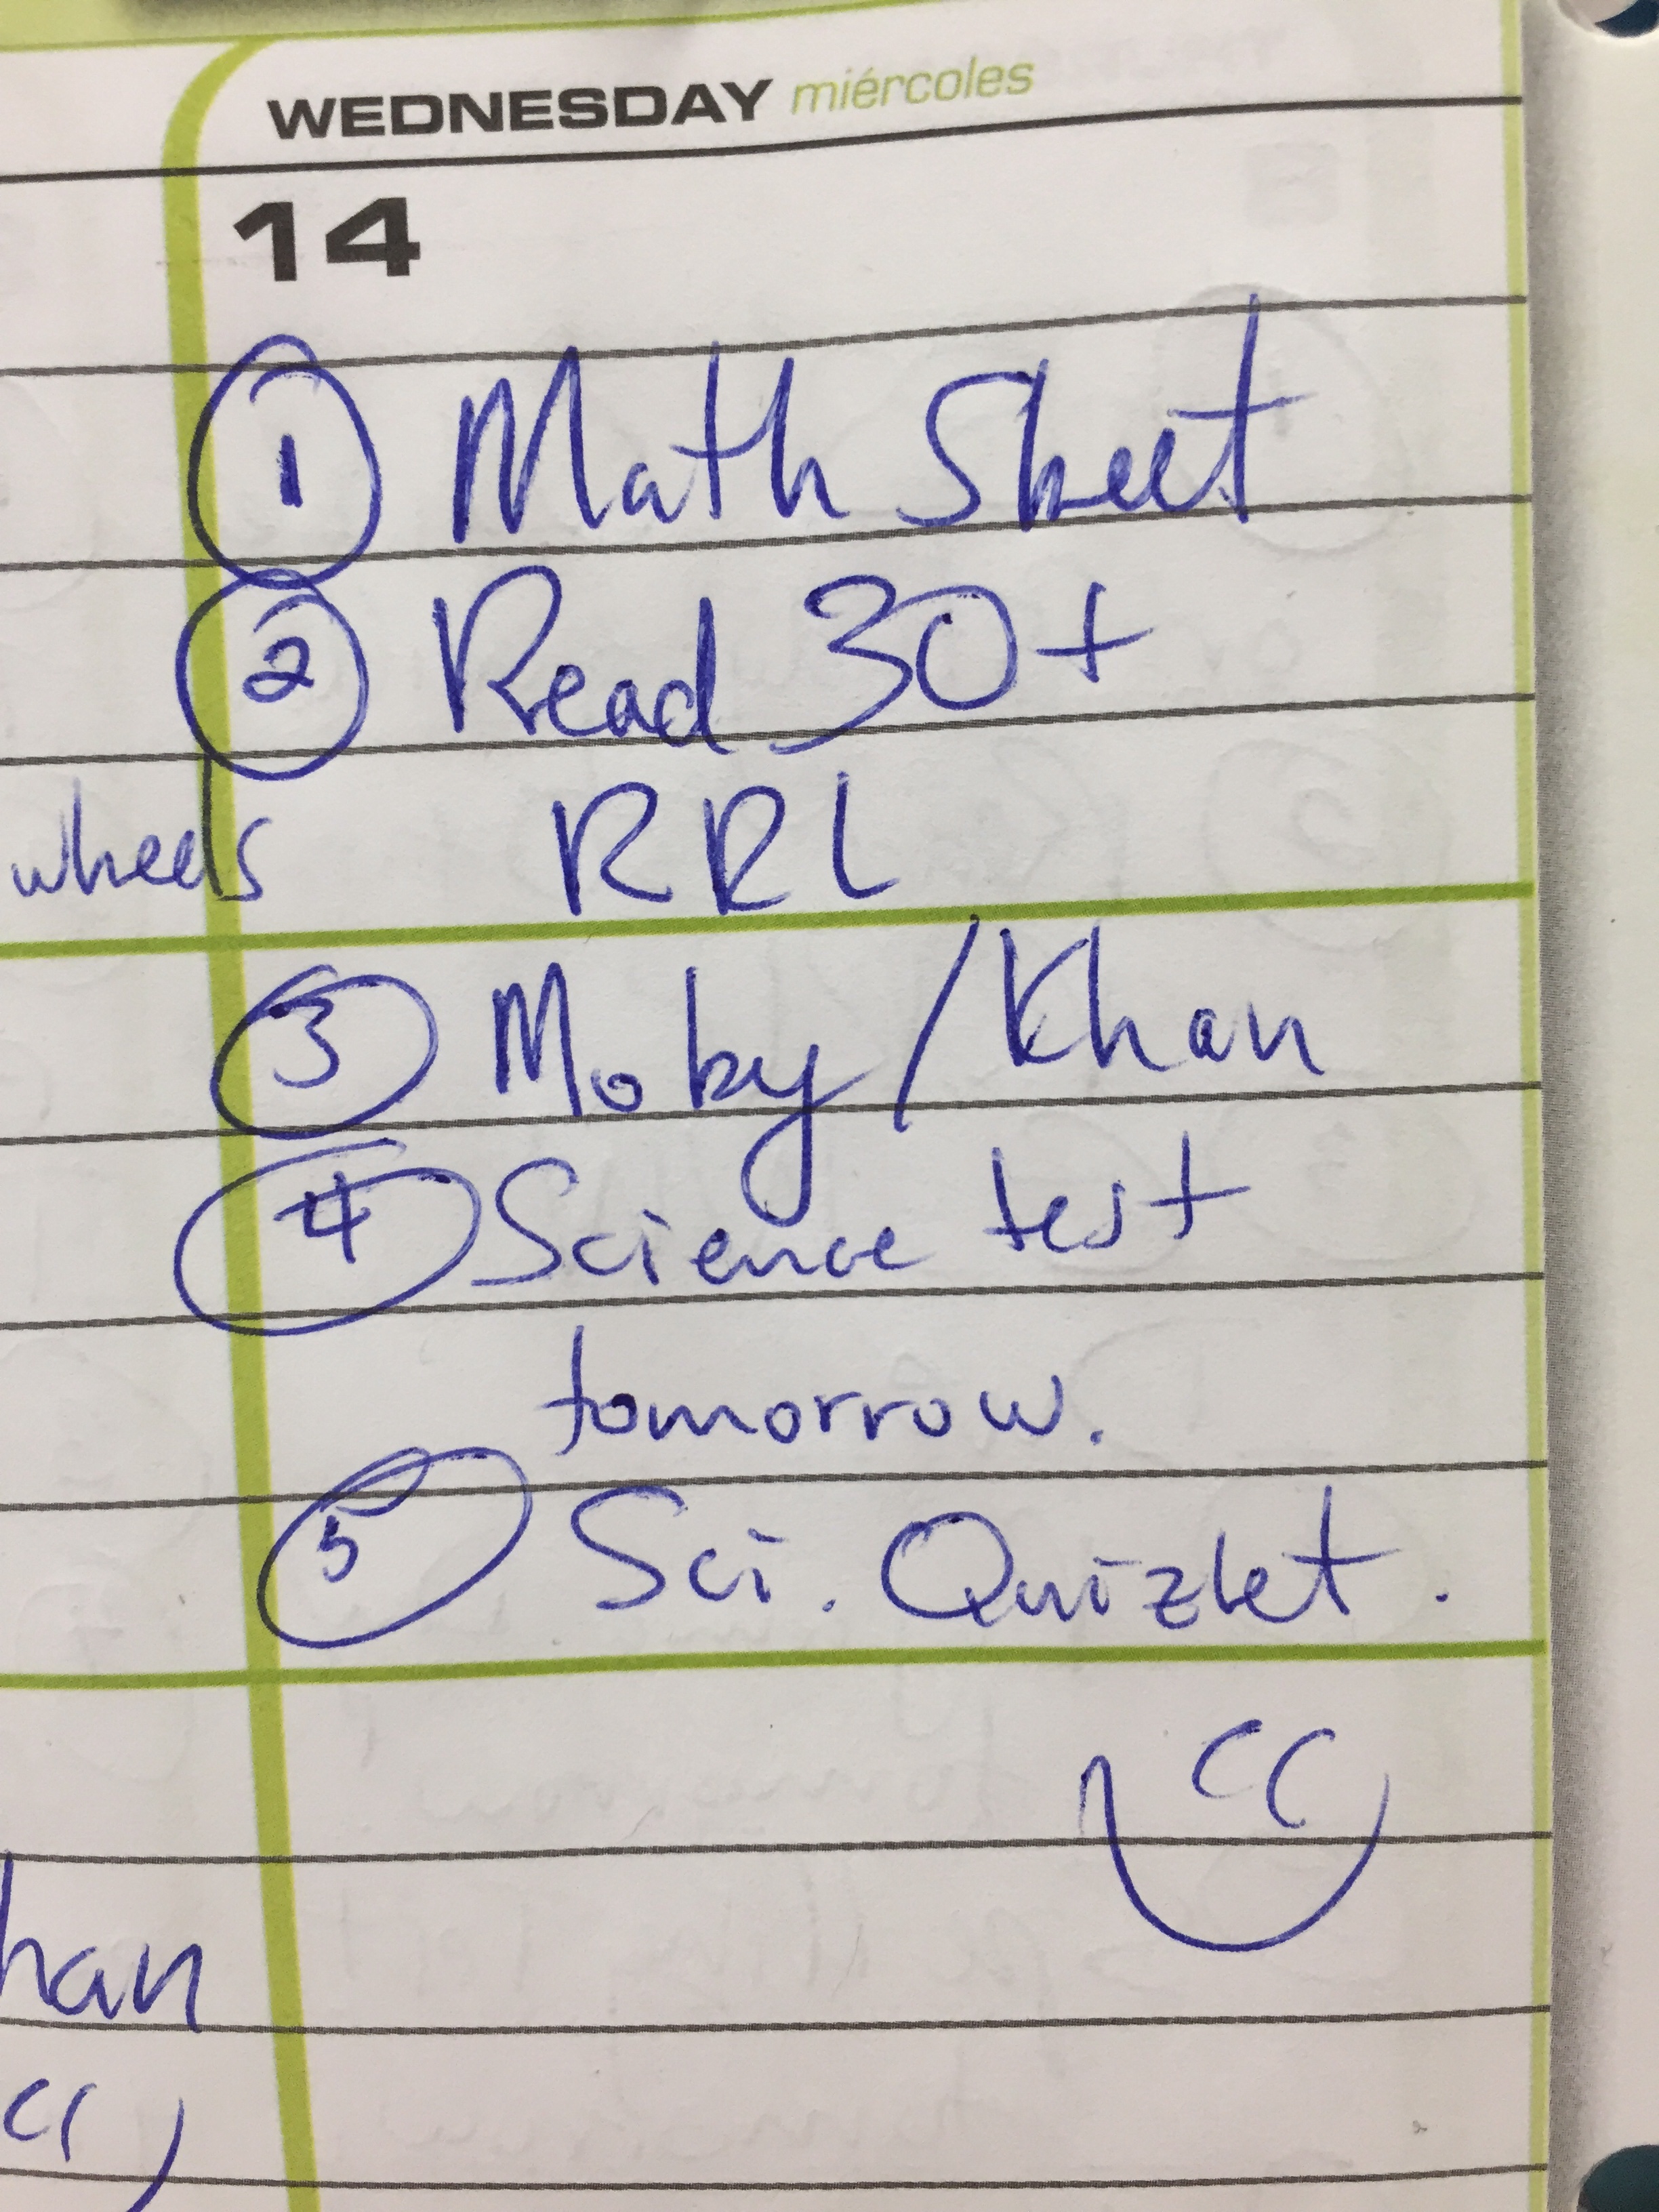 WEDNESDAY miércoles
14
1 Math Sheet
2 Read 30+
wheels RRL
3 Moby/Khan
4 Science test
tomorrow.
5 Sci. Quizlet.
CC
han
CC